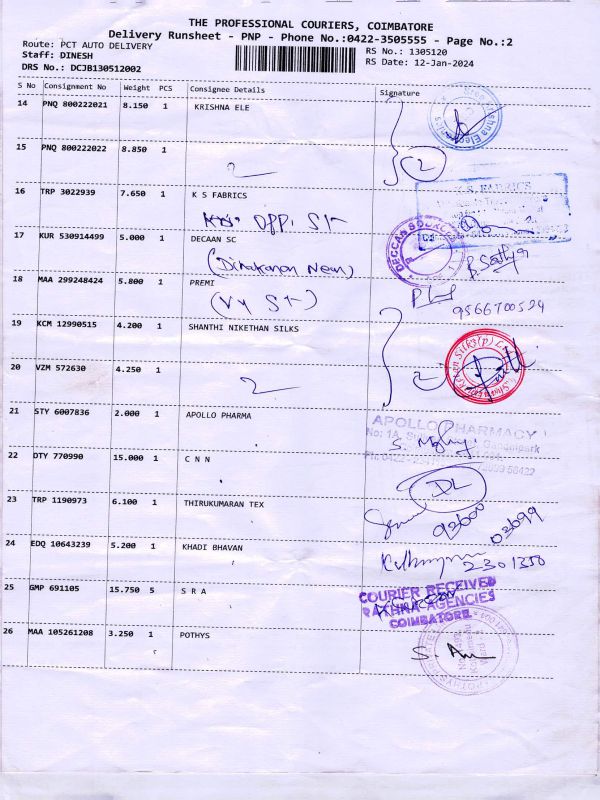 THE PROFESSIONAL COURIERS, COIMBATORE
Delivery Runsheet - PNP - Phone No.:0422-3505555 - Page No.:2
Route: PCT AUTO DELIVERY
RS No.: 1305120
Staff: DINESH
RS Date: 12-Jan-2024
DRS No.: DCJB130512002
S No Consignment No Weight PCS Consignee Details Signature
14 PNQ 800222021 8.150 1 KRISHNA ELE
15 PNQ 800222022 8.850 1
2 2
16 TRP 3022939 7.650 1 K S FABRICS
K.S. FABRICS
Opp. St
17 KUR 530914499 5.000 1 DECAAN SC
(Dinakaran Near)
18 MAA 299248424 5.800 1 PREMI
(VV St)
19 KCM 12990515 4.200 1 SHANTHI NIKETHAN SILKS
20 VZM 572630 4.250 1
2 2
21 STY 6007836 2.000 1 APOLLO PHARMA
APOLLO PHARMACY
22 DTY 770990 15.000 1 C N N
DL
23 TRP 1190973 6.100 1 THIRUKUMARAN TEX
24 EDQ 10643239 5.200 1 KHADI BHAVAN
2301350
25 GMP 691105 15.750 5 S R A
COURIER RECEIVED
AGENCIES
COIMBATORE
26 MAA 105261208 3.250 1 POTHYS